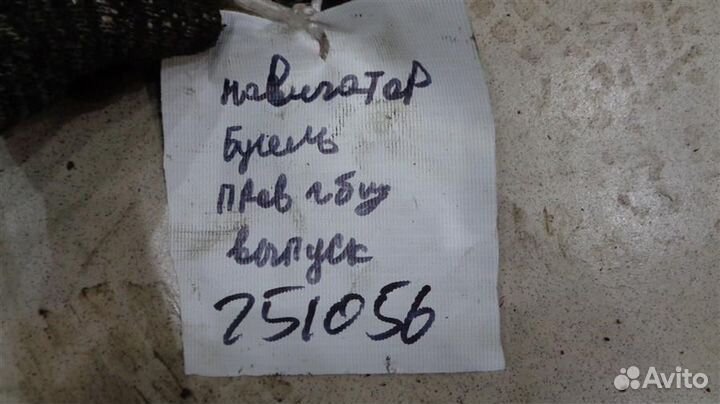 навигатор
бугель
прав гбц
выпуск
251056
Avito